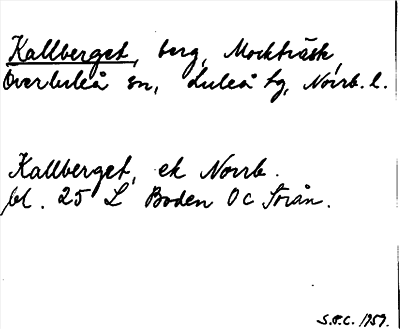 Kallberget, berg, Mockträsk,
Överluleå sn, Luleå tg, Norrb. l.
Kallberget, ek Norrb.
bl. 25 L Boden OC Storån.
S.P.C. 1959.